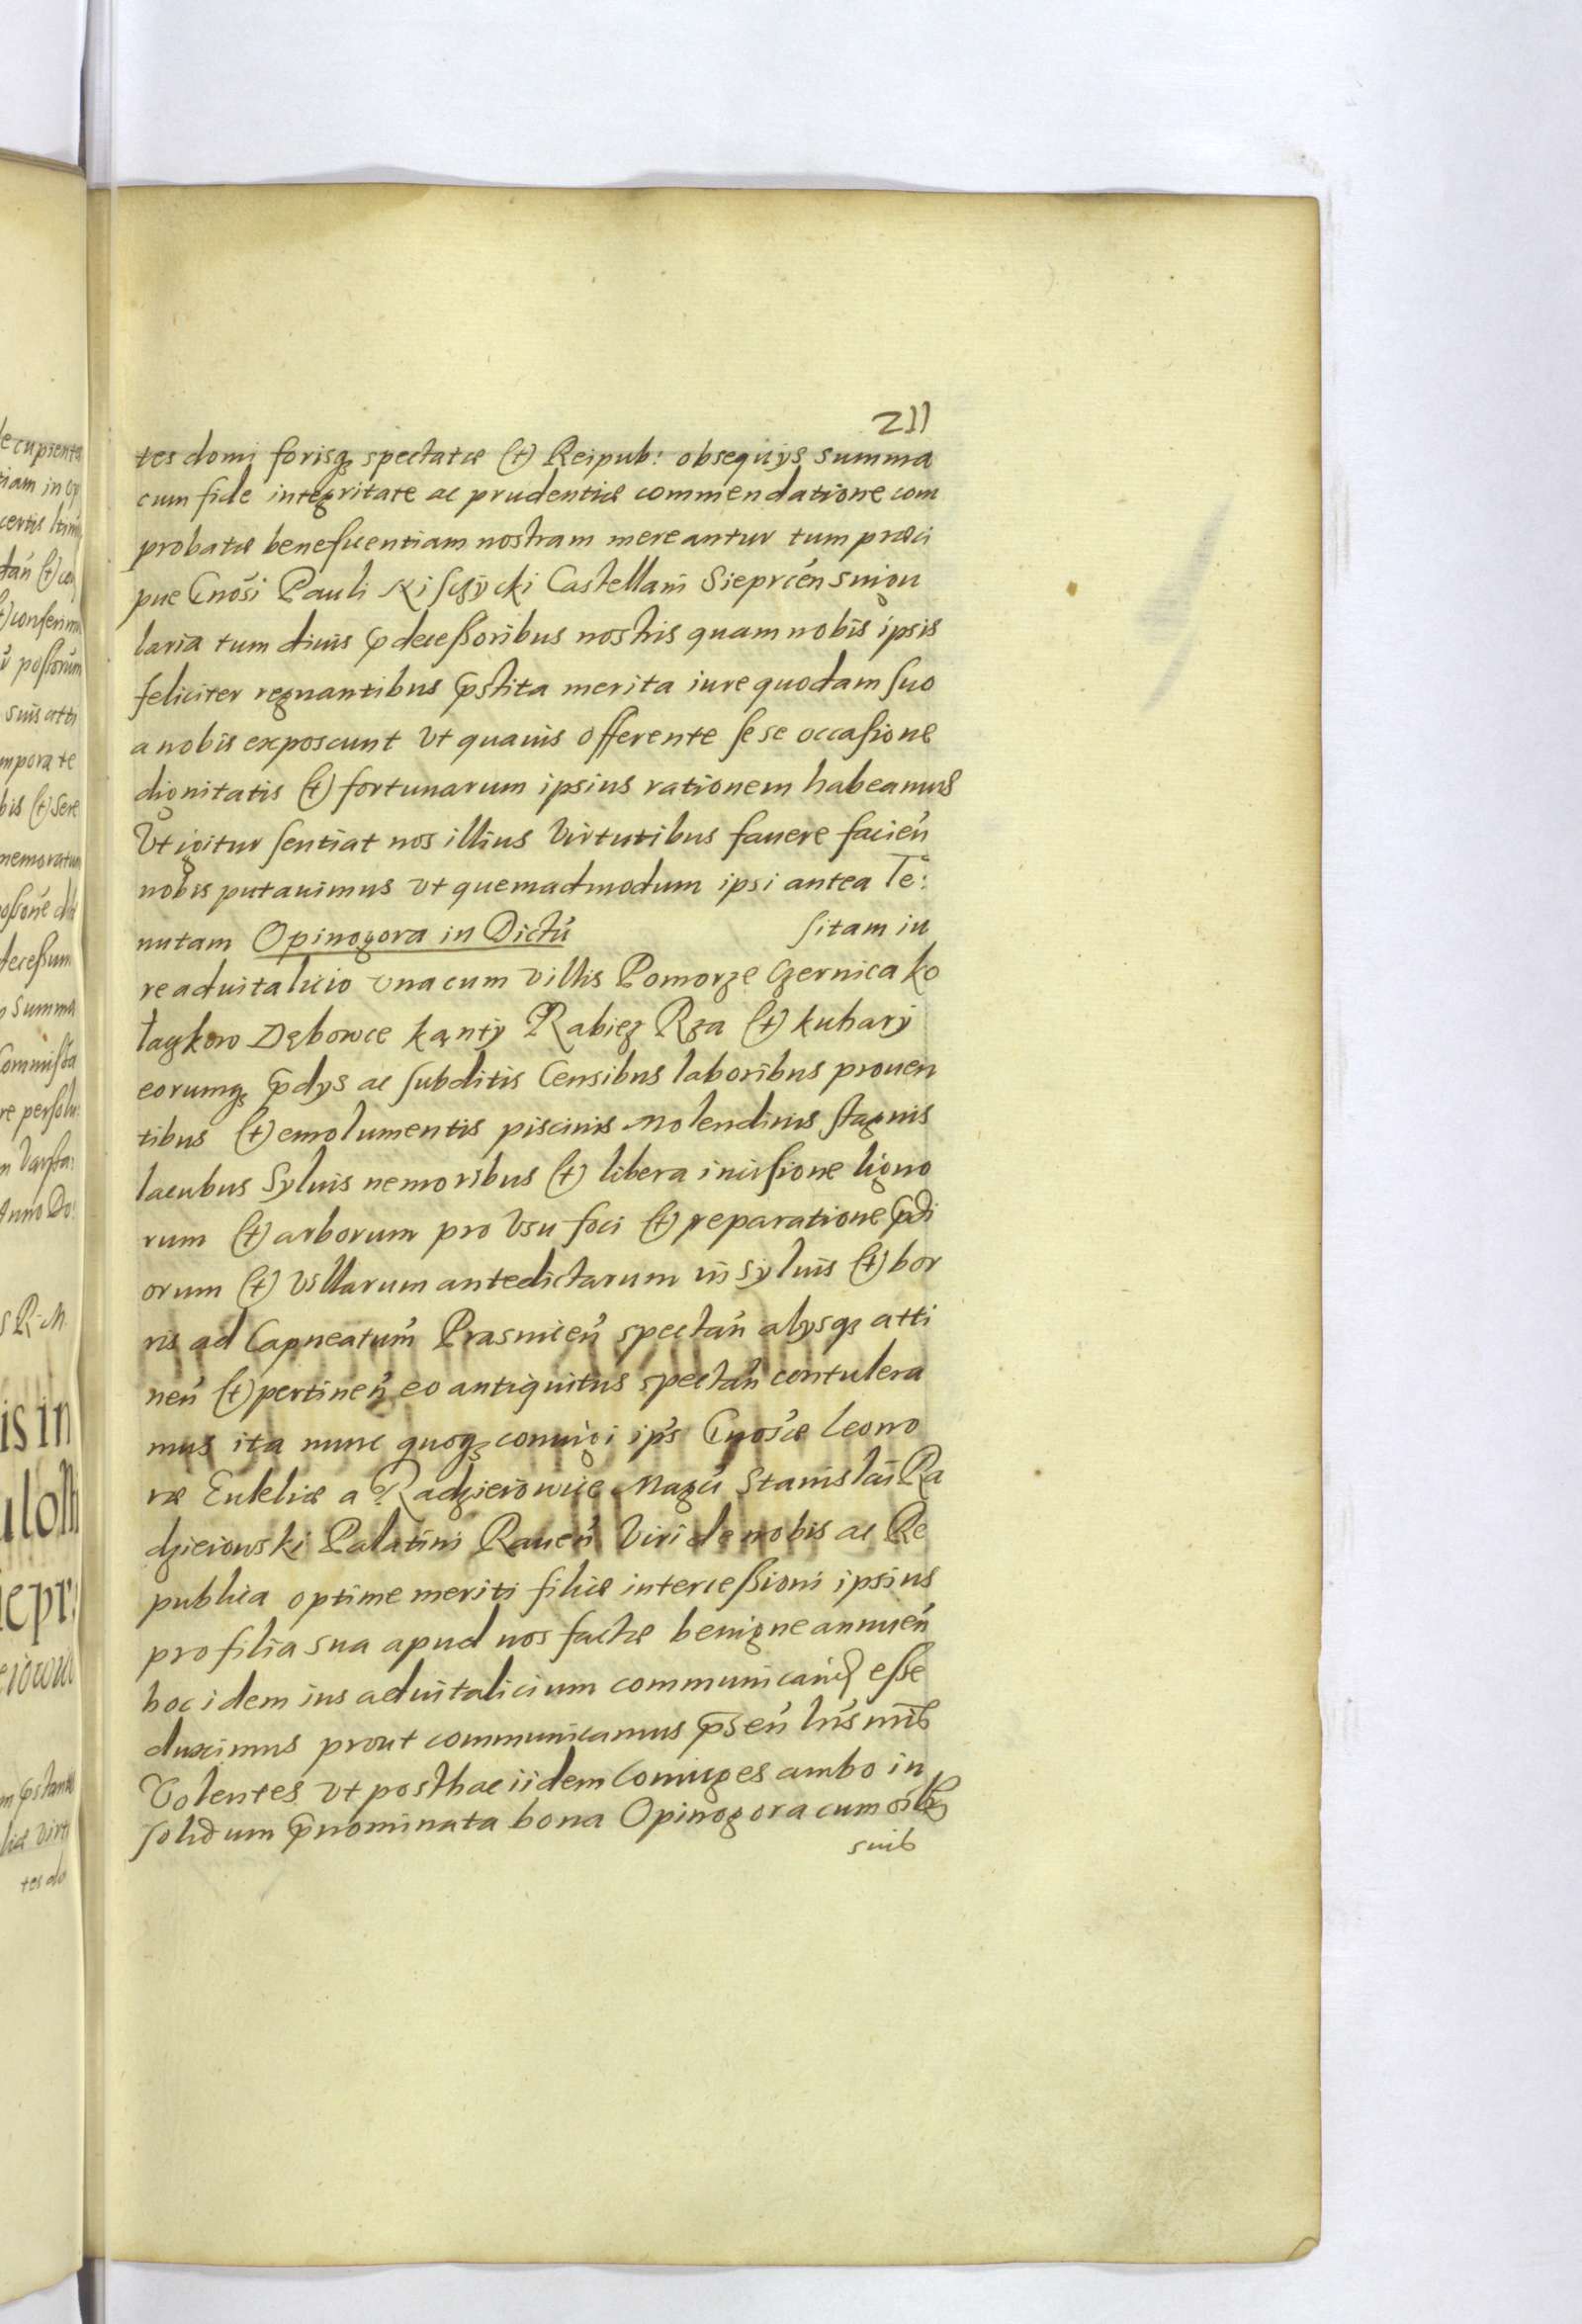 211
tes domi forisq₃ spectatæ (et) Reipub: obsequijs summa
cum fide integritate ac prudentiæ commendatione com
probatæ beneficentiam nostram mereantur tum præci
pue Gnosi Pauli Kisчÿcki Castellani Sieprcen singu
laria tum diuis p̄decessoribus nostris quam nobis ipsis
feliciter regnantibus p̄stita merita iure quodam suo
a nobis exposcunt Vt quauis offerente sese occasione
dignitatis (et) fortunarum ipsius rationem habeamus
Vt igitur sentiat nos illius Virtutibus fauere facień
nobis putauimus vt quemadmodum ipsi antea Te:
nutam Opinogora in Dictú sitam iu
re aduitalicio vna cum villis Pomorze Czernica ko
łaczkow Dębowce kąntÿ Rabiez Rza (et) kuharÿ
eorumq₃ p̄dys ac subditis Censibus laboribus prouen
tibus (et) emolumentis piscinis Molendinis stagnis
lacubus Syluis nemoribus (et) libera incisione ligno
rum (et) arborum pro Vsu foci (et) reparatione p̄di
orum (et) Villarum antedictarum in syluis (et) bor
ris ad Capneatum Prasnicen spectań alysq₃ atti
neń (et) pertineń eo antiquitus spectań contulera
mus ita nunc quoq₃ coniugi ips Gnosæ Leono
ræ Eukliæ a Radzieiowice Magci Stanislai Ra
dzieiowski Palatini Raueń Viri de nobis ac Re
publica optime meriti filiæ intercessioni ipsius
pro filia sua apud nos factæ benigne annueń
hoc idem ius aduitalicium communicand esse
duximus prout communicamus p̄seń lris nris
Volentes vt posthac iidem Coniuges ambo in
solidum p̄nominata bona Opinogora cum oibq₃
suis